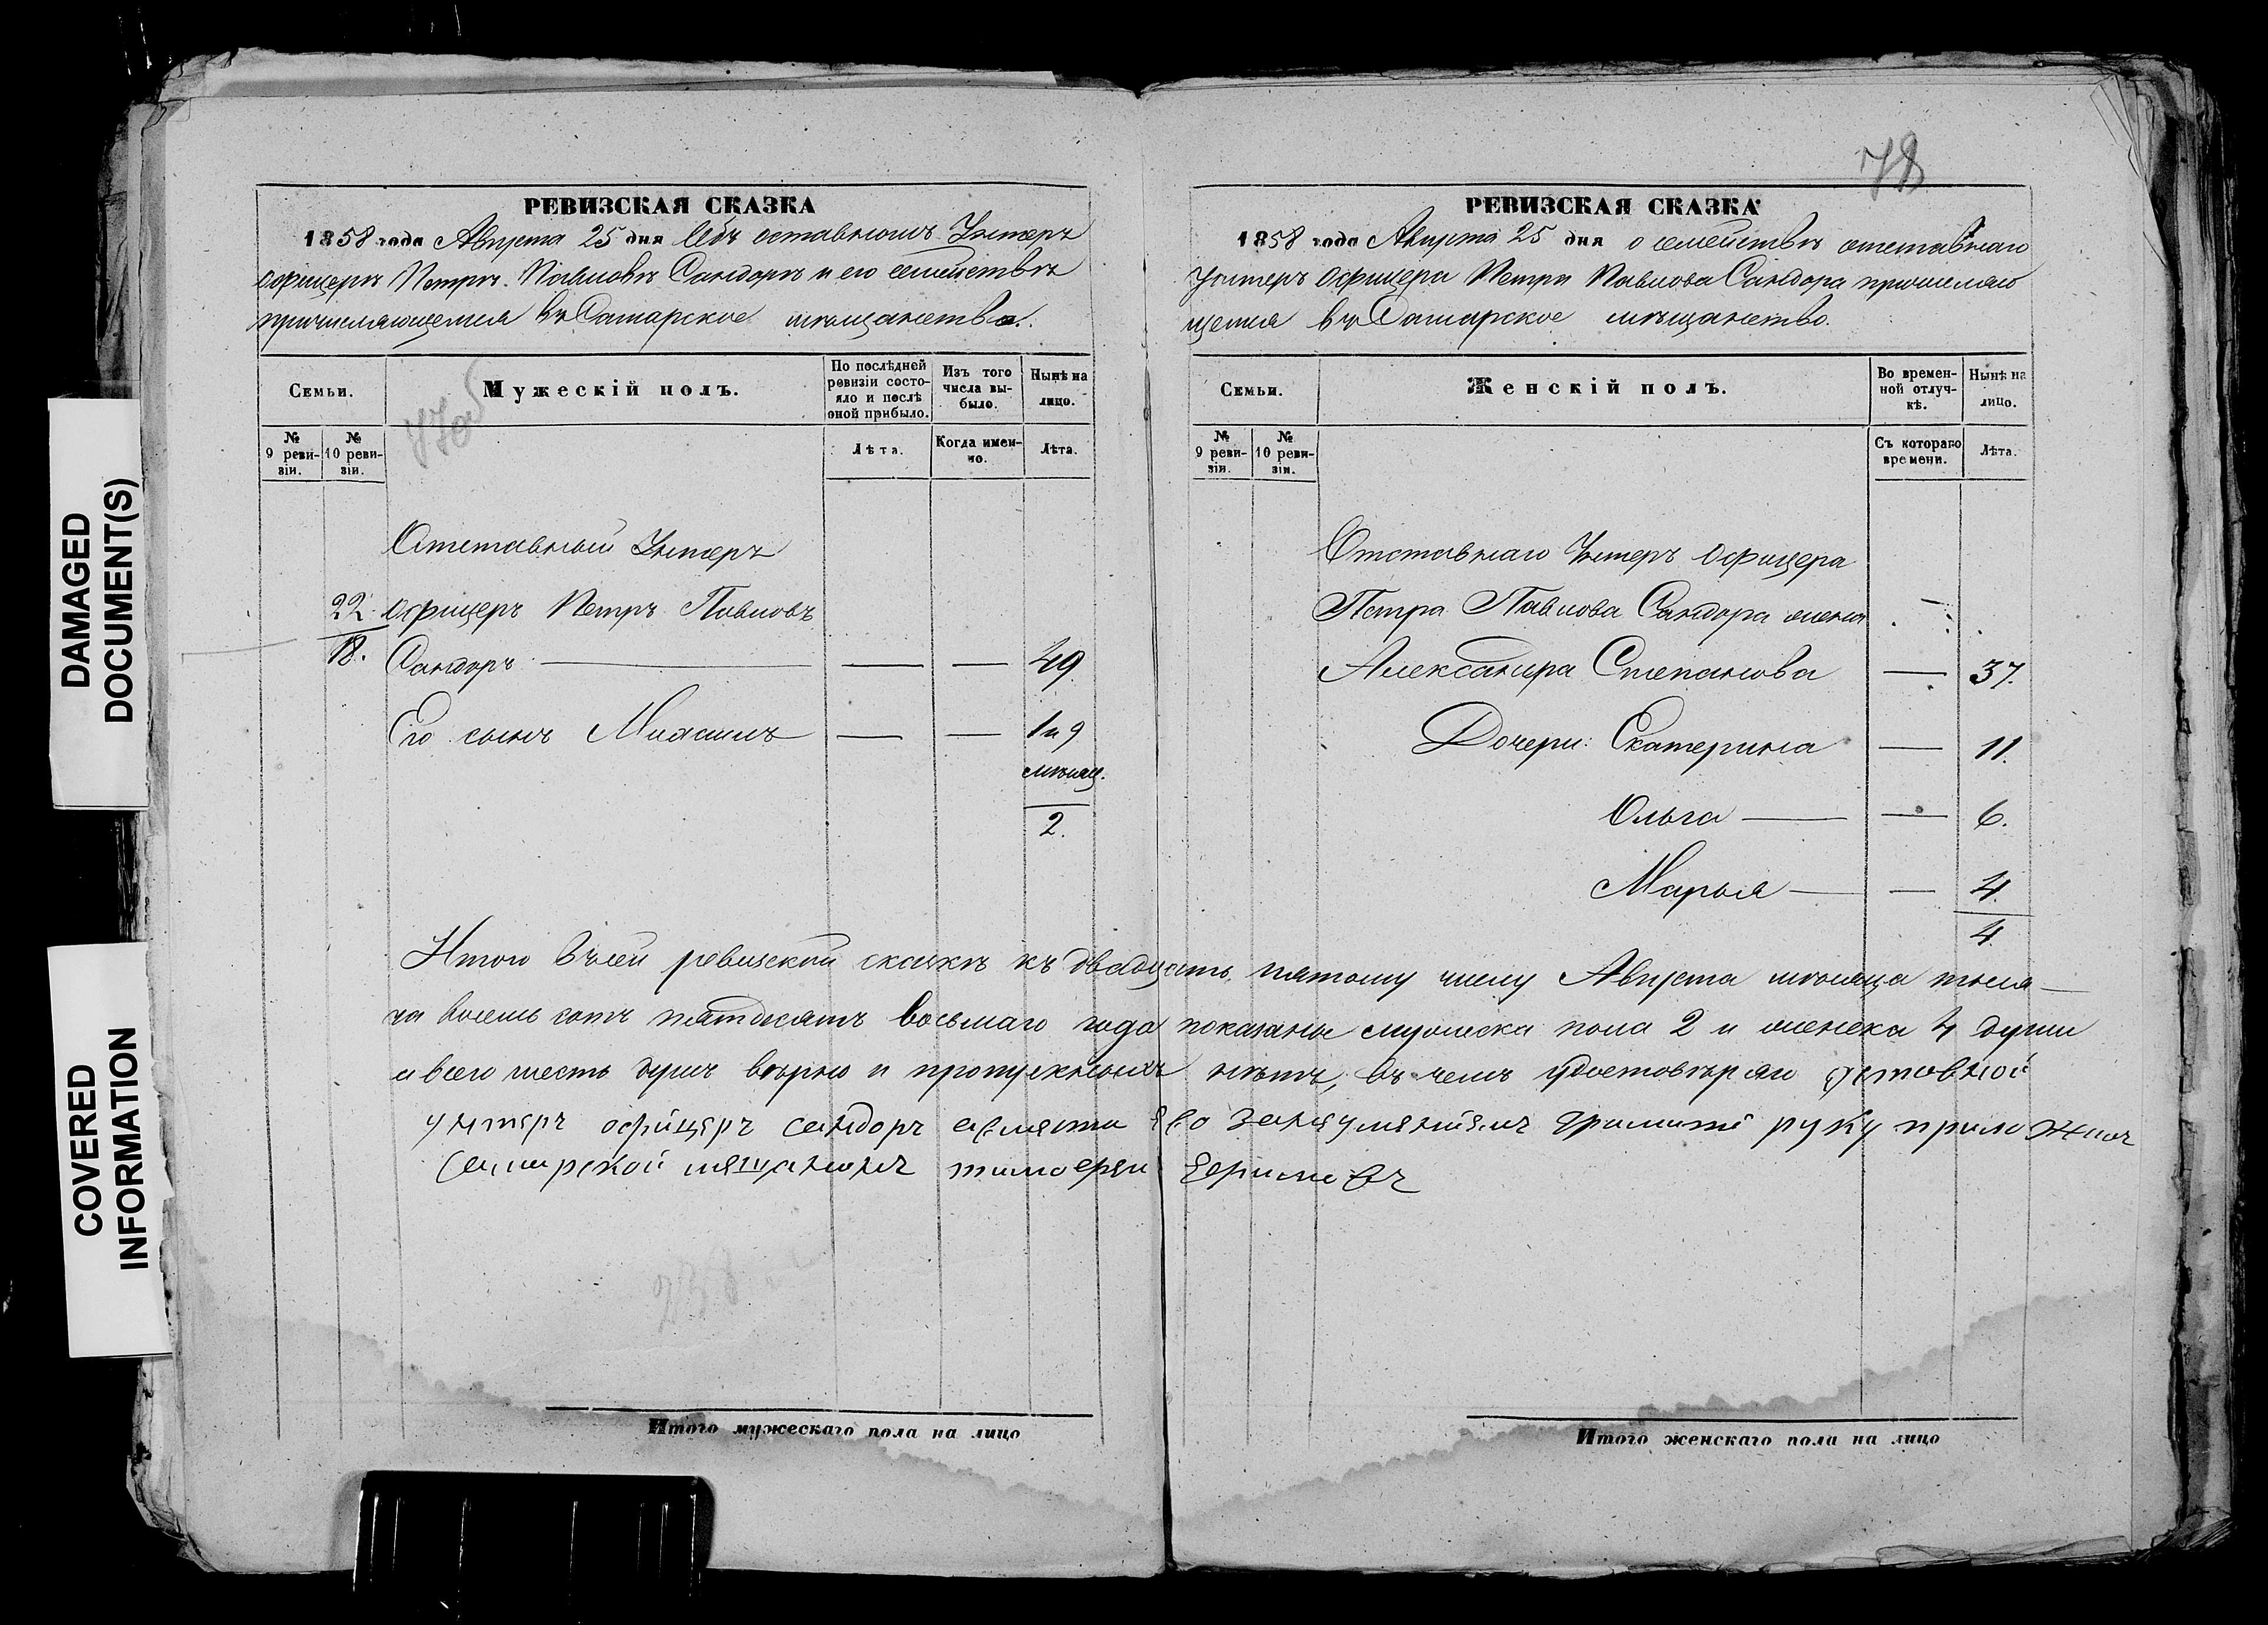 78
РЕВИЗСКАЯ СКАЗКА
1858 года Августа 25 дня Объ оставномъ Унтеръ
офицеръ Петръ Павловъ Сандоръ и его семействѣ
причисляющемся въ Самарское мѣщанство.
Семьи.
Мужескій полъ.
По послѣдней ревизіи состояло и послѣ оной прибыло.
Изъ того числа выбыло.
Нынѣ на лицо.
№ 9 ревизіи.
№ 10 ревизіи.
Лѣта.
Когда именно.
Лѣта.
Отставный Унтеръ
22. офицеръ Петръ Павловъ
18. Сандоръ — — — 49
Его сынъ — — 1 и 9
мѣсяц.
2.
РЕВИЗСКАЯ СКАЗКА
1858 года Августа 25 дня о семействѣ отставнаго
Унтеръ офицера Петра Павлова Сандора причисляю
щемся въ Самарское мѣщанство.
Семьи.
Женскій полъ.
Во временной отлучкѣ.
Нынѣ на лицо.
№ 9 ревизіи.
№ 10 ревизіи.
Съ котораго времени.
Лѣта.
Отставнаго Унтеръ офицера
Петра Павлова Сандора жена —
Александра Степанова — 37.
Дочери: Екатерина — 11.
Ольга — — 6.
Марья — — 4.
4.
Итого въ сей ревизской сказкѣ къ двадцать пятому числу Августа мѣсяца тыся—
ча восемь сотъ пятдесятъ восьмаго года показаны мужеска пола 2 и женска 4 души
а всего шесть душъ вѣрно и пропускныхъ нѣтъ, въ чемъ удостовѣряю
унтеръ офицеръ сандоръ авмѣсто ево занеумѣніемъ грамоте руку приложилъ
Самарской мѣщанинъ тимофеи
Итого мужескаго пола на лицо
Итого женскаго пола на лицо
DAMAGED DOCUMENT(S)
COVERED INFORMATION